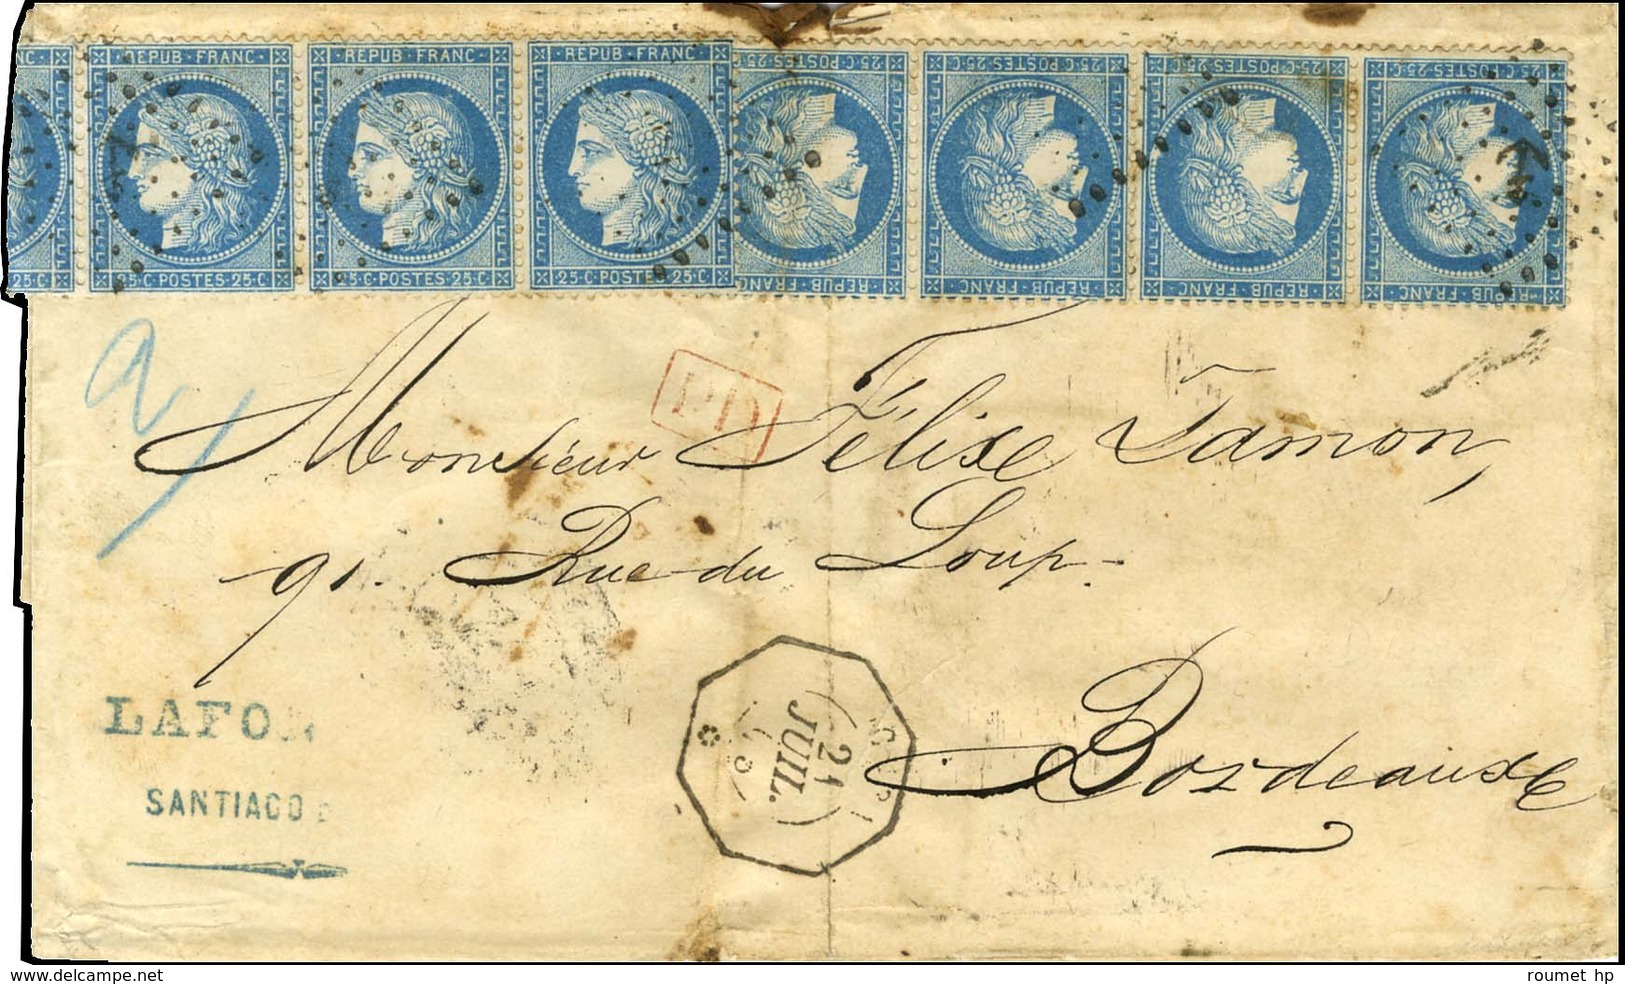 REPUB·FRANC· REPUB·FRANC· REPUB·FRANC·
25·C·POSTES·25·C 25·C·POSTES·25·C 25·C·POSTES·25·C 25·C·POSTES·25·C
25·C·POSTES·25·C 25·C·POSTES·25·C 25·C·POSTES·25·C
REPUB·FRANC· REPUB·FRANC· REPUB·FRANC· REPUB·FRANC·
PD
Monsieur Félixe Tamon,
91. Rue du Loup.
LAFO
SANTIAGO
21
JUIL.
Bordeauxe
delcampe.net
roumet hp